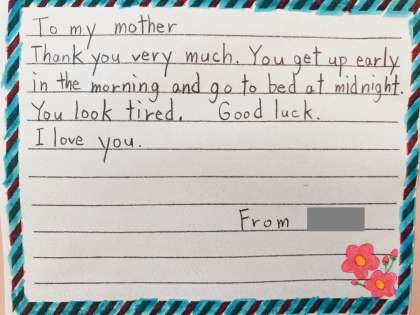 To my mother
Thank you very much. You get up early
in the morning and go to bed at midnight.
You look tired. Good luck.
I love you.
From